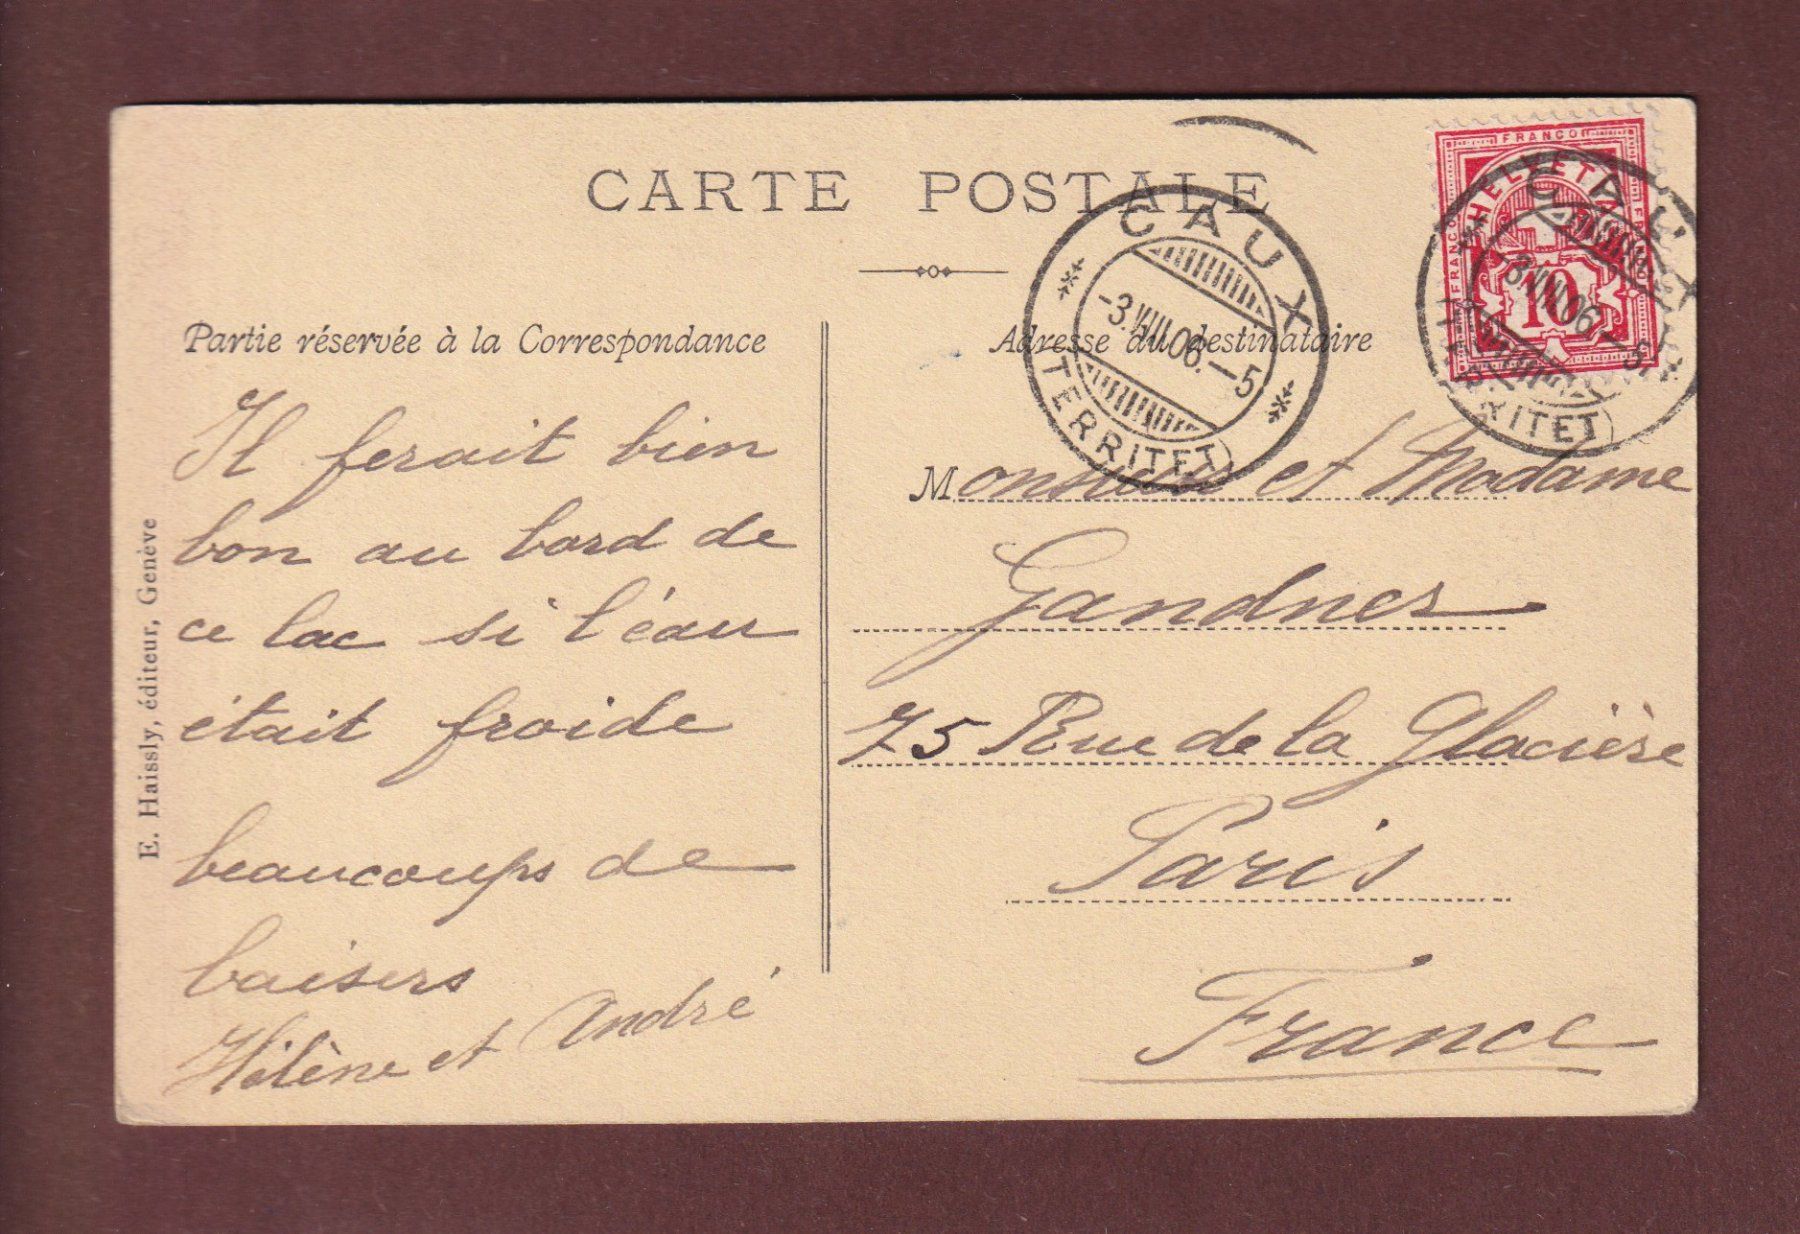 CARTE POSTALE
Partie réservée à la Correspondance
Adresse du destinataire
Il ferait bien
bon au bord de
ce lac si l'éau
était froide
beaucoups de
baisers
Hélène et André
Monsieur et Madame
Gandner
75 Rue de la Glacière
Paris
France
E. Haissly, éditeur, Genève
CAUX
-3.VIII.06.-5
TERRITET
FRANCO
HELVETIA
FRANCO
10
-3.VIII.06.-5
TERRITET